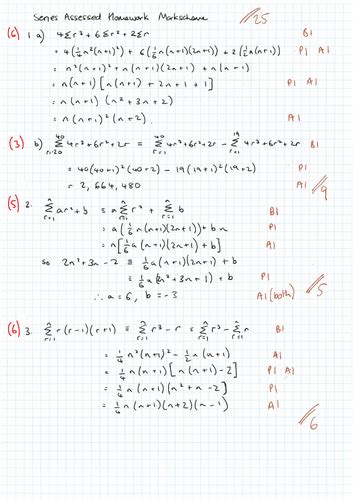 Series Assessed Homework Markscheme //25
(6) 1 a) 4Σr³ + 6Σr² + 2Σr B1
= 4(¼n²(n+1)²) + 6(⅙n(n+1)(2n+1)) + 2(½n(n+1)) P1 A1
= n²(n+1)² + n(n+1)(2n+1) + n(n+1)
= n(n+1)[n(n+1) + 2n+1 + 1] P1 A1
= n(n+1)(n²+3n+2)
= n(n+1)²(n+2) A1
(3) b) Σ_{r=20}^{40} 4r³+6r²+2r = Σ_{r=1}^{40} 4r³+6r²+2r − Σ_{r=1}^{19} 4r³+6r²+2r B1
= 40(40+1)²(40+2) − 19(19+1)²(19+2) P1
= 2,664,480 A1 //9
(5) 2. Σ_{r=1}^{n} ar²+b = aΣ_{r=1}^{n} r² + Σ_{r=1}^{n} b B1
= a(⅙n(n+1)(2n+1)) + bn P1
= n[⅙a(n+1)(2n+1) + b] A1
so 2n²+3n−2 ≡ ⅙a(n+1)(2n+1) + b
= ⅙a(2n²+3n+1) + b P1
∴ a=6, b=−3 A1 (both) //5
(6) 3. Σ_{r=1}^{n} r(r−1)(r+1) = Σ_{r=1}^{n} r³−r = Σ_{r=1}^{n} r³ − Σ_{r=1}^{n} r B1
= ¼n²(n+1)² − ½n(n+1) A1
= ¼n(n+1)[n(n+1)−2] P1 A1
= ¼n(n+1)(n²+n−2) P1
= ¼n(n+1)(n+2)(n−1) A1
//6